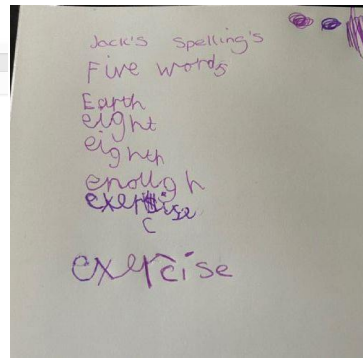 Jack's Spelling's
Five words
Earth
eight
eighth
enough
exersise
c
exercise